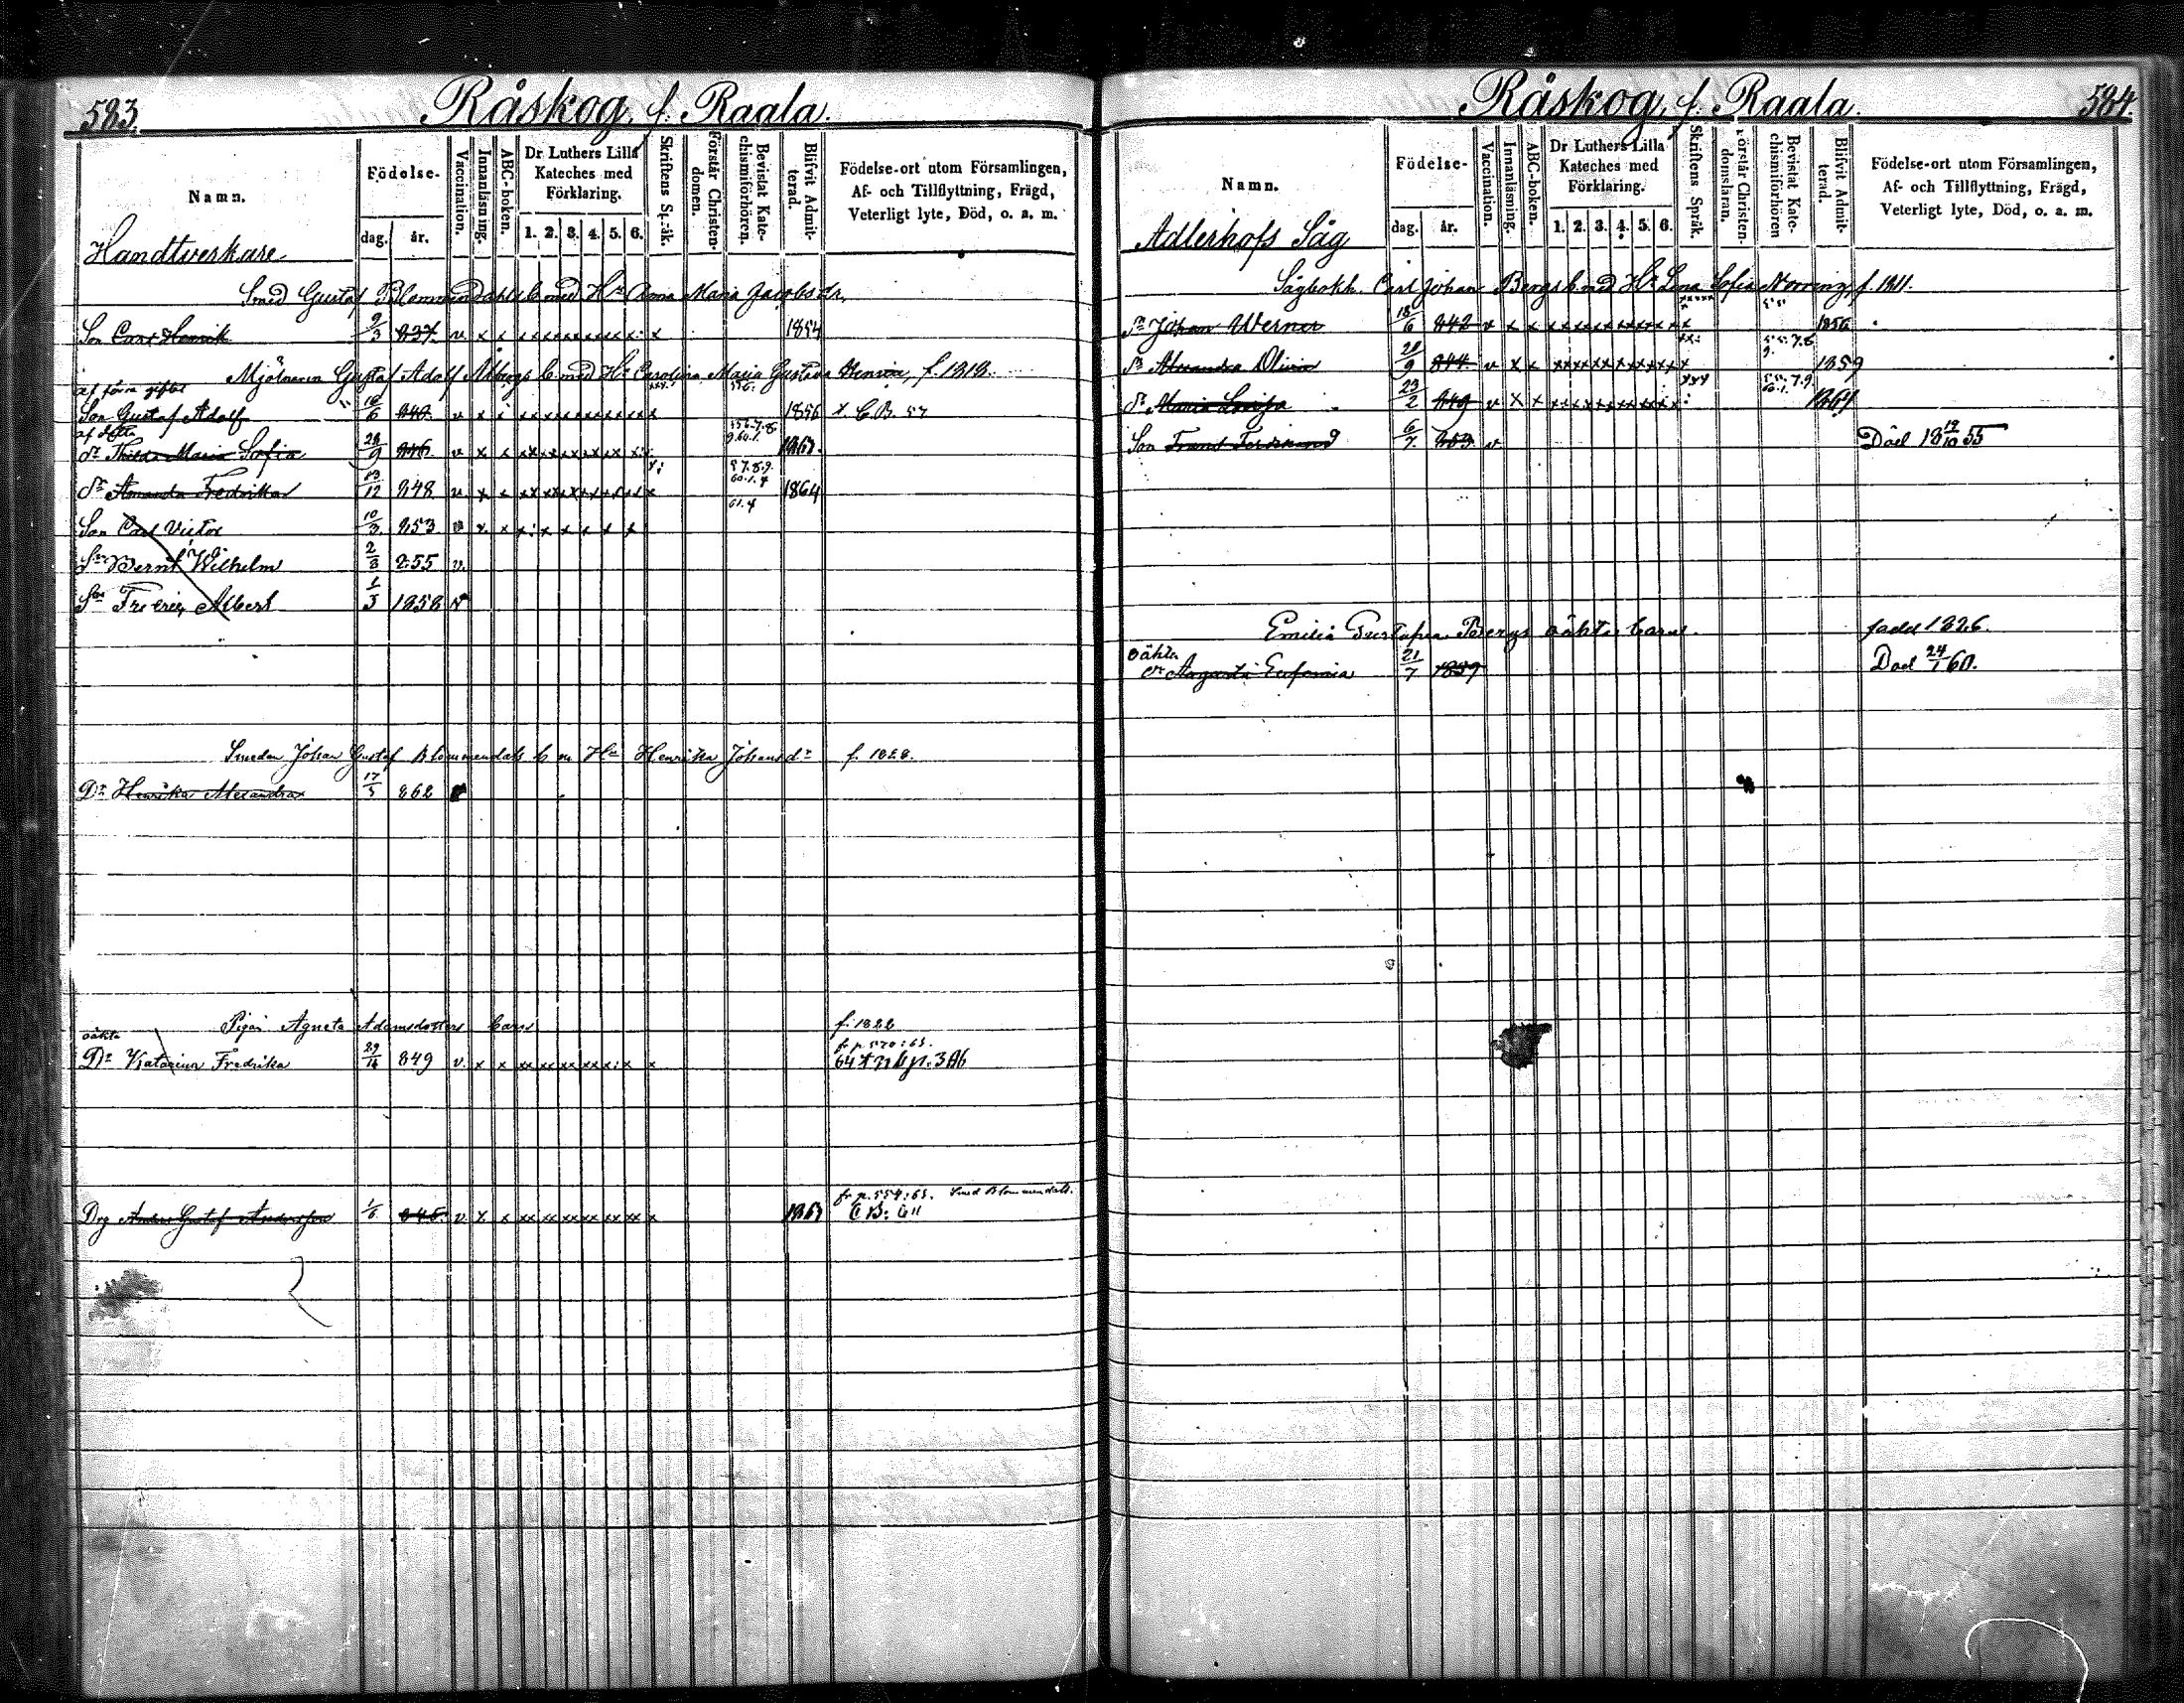 583.
Råskog, f. Raala.
Namn.
Födelse-
dag.
år.
Vaccination.
Innanläsning.
ABC-boken.
Dr Luthers Lilla
Kateches med
Förklaring.
1. 2. 3. 4. 5. 6.
Skriftens Språk.
Förstår Christen-
domen.
Bevistat Kate-
chismiförhören.
Blifvit Admit-
terad.
Födelse-ort utom Församlingen,
Af- och Tillflyttning, Frägd,
Veterligt lyte, Död, o. a. m.
Handtverkare
Smed Gustaf Blommendahls b. med Hu Anna Maria Jacobsdr.
Son Carl Henrik 9/3 837. v x x 1854
Mjölnaren Gustaf Adolf b med Hu Carolina Maria Gustava f. 1818.
af förra giftet
Son Gustaf Adolf 18/6 840. v x x 1856 x C.B. 57
af detta
Dr Maria Sofia 28/9 846 v x x
Dr Amanda Fredrika 13/12 848 v. x x 1864
Son Carl Victor 10/3 853 v x x
Son Bernt Wilhelm 2/3 855 v.
Son Albert 1/3 1858 v
Smeden Johan Gustaf Blommendals b m Hu Henrika Johansdr f. 1828.
Dr Henrika Alexandra 17/5 862
Pigan Agneta Adamsdotters barn f. 1822
oäkta
fr p. 570: 63.
Dr Katarina Fredrika 849 v. x x
fr p. 554: 63. Smed Blommendals.
Drg Anders Gustaf Andersson 1/6 846. v x x
584.
Råskog, f. Raala.
Namn.
Födelse-
dag.
år.
Vaccination.
Innanläsning.
ABC-boken.
Dr Luthers Lilla
Kateches med
Förklaring.
1. 2. 3. 4. 5. 6.
Skriftens Språk.
Förstår Christen-
domsläran.
Bevistat Kate-
chismiförhören
Blifvit Admit-
terad.
Födelse-ort utom Församlingen,
Af- och Tillflyttning, Frägd,
Veterligt lyte, Död, o. a. m.
Adlerhofs Såg
Sågbokh. Carl Johan Bergs b med Hu Lena Sofia Norring, f. 1811.
Johan Werner 18/6 842 v x x 1856
Dr Alexandra Olivia 28/9 844. v x x 1859
Dr Maria Lovisa 23/2 849 v x x
Son Frans Ferdinand 6/7 853. v Död 18 19/10 55
Emilia Gustafva Bergs oäkta barn. född 1826.
oäkta
Dr Augusta Eufemia 21/7 1859 Död 24/1 60.